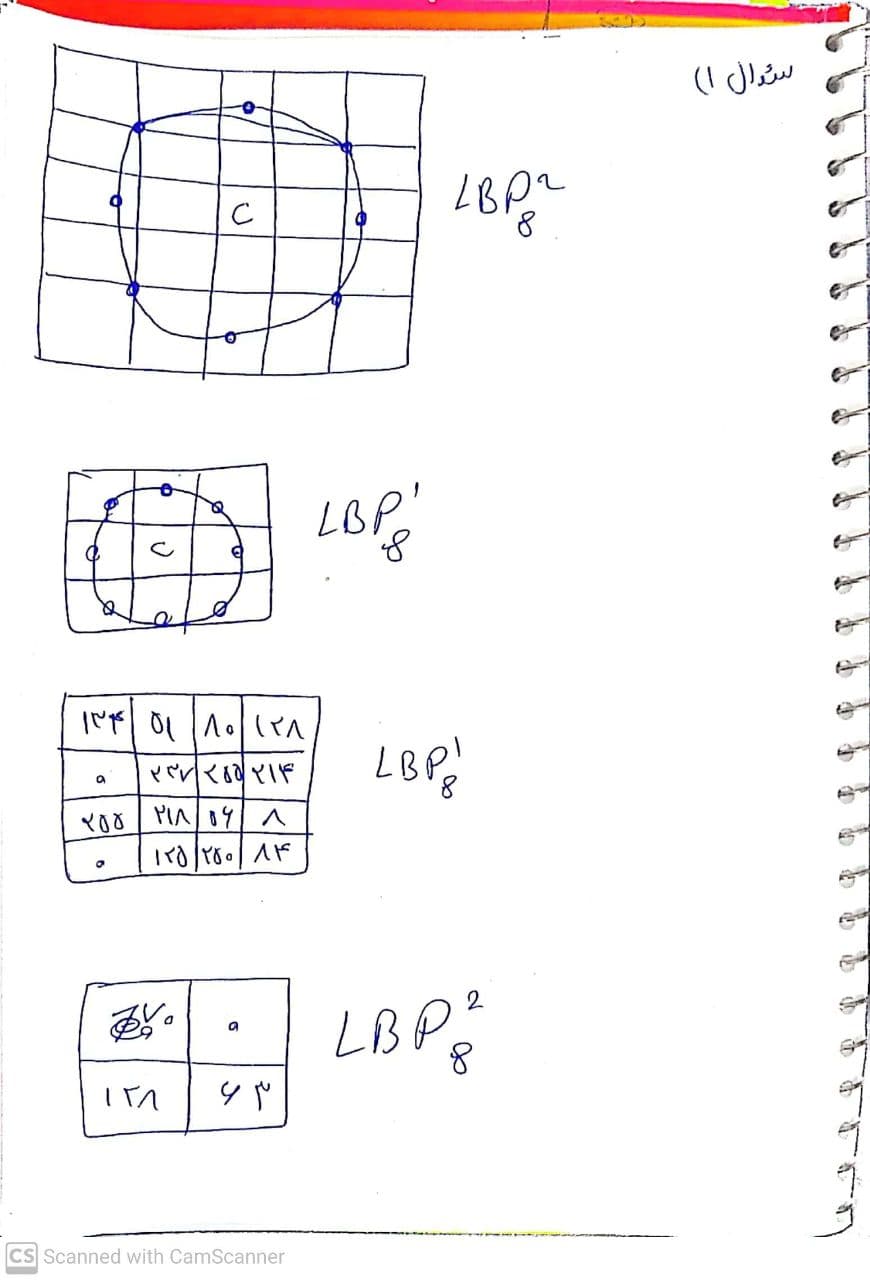 سئوال ۱)
C
LBP₈²
C
LBP₈¹
۱۲۴ ۵۱ ۸۰ ۱۲۸
۰ ۲۳۷ ۲۵۵ ۲۱۴
۲۵۵ ۲۱۸ ۵۶ ۸
۰ ۱۲۵ ۲۵۰ ۸۴
LBP₈¹
۷۰ ۰
۱۲۸ ۶۳
LBP₈²
CS Scanned with CamScanner